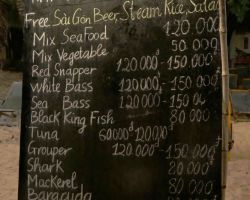 Free SàiGòn Beer, Steam Rice, Salad
Mix SeaFood 120.000
Mix Vegetable 50.000
Red Snapper 120.000đ - 150.000đ
White Bass 120.000đ - 150.000đ
Sea Bass 120.000đ - 150.000đ
Black King Fish 80.000
Tuna 60000đ 120.000đ
Grouper 120.000đ - 150.000đ
Shark 20.000
Mackerel 80.000
Baracuda